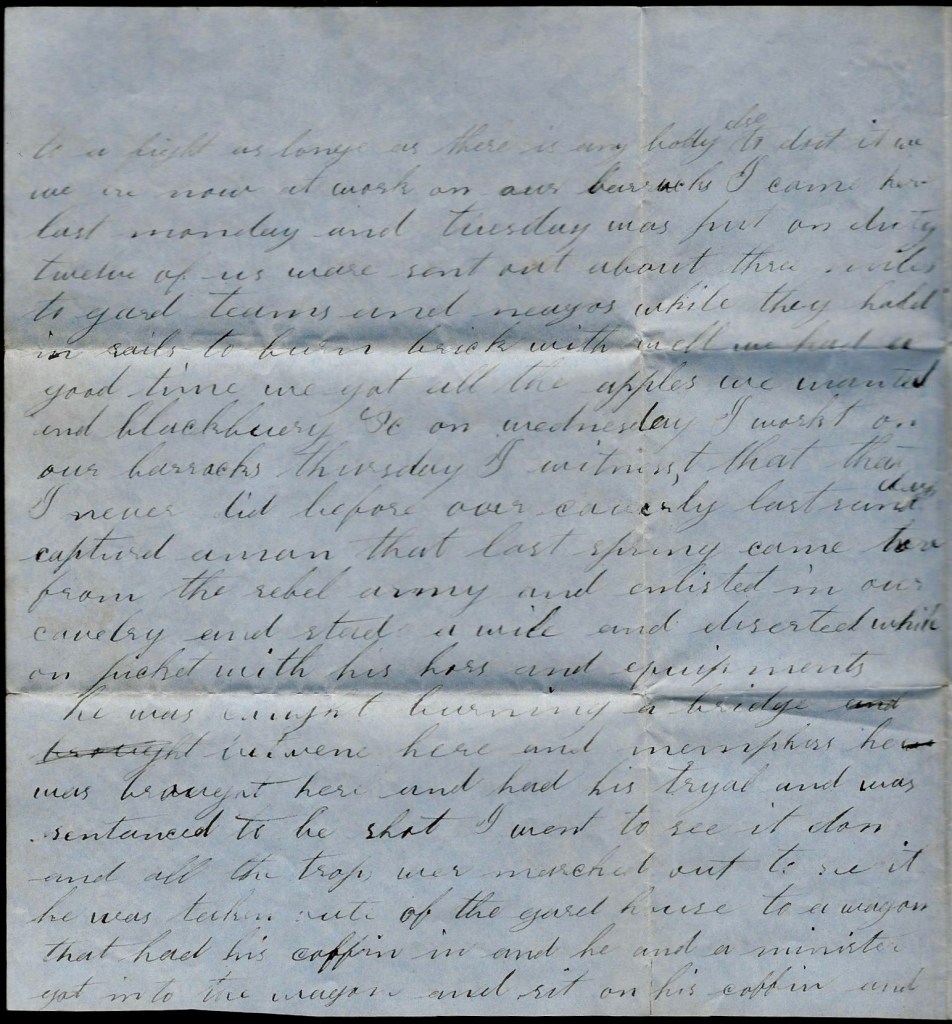 to a fight as longe as there is any body else to doit it we
we ar now at work on our barracks I came her
last monday and tuesday was put on duty
twelve of us ware sent out about thre miles
to gard teams and neagos while they hald
in rails to burn brick with well we had a
good time we got all the apples we wanted
and blackbuery &c on wednesday I workt on
our barracks thursday I witnesst that that
I never did before our caverly last sunday
capturd a man that last spring came
from the rebel army and enlisted in our
cavelry and staid a wile and diserted while
on picket with his hors and equip ments
he was caught burning a bridge and
brought betwene here and memphis he
was braught here and had his tryal and was
sentanced to be shot I went to see it don
and all the trops wer marched out to see it
he was taken oute of the gard house to a wagon
that had his coffin in and he and a minister
got into the wagon and sit on his coffin and